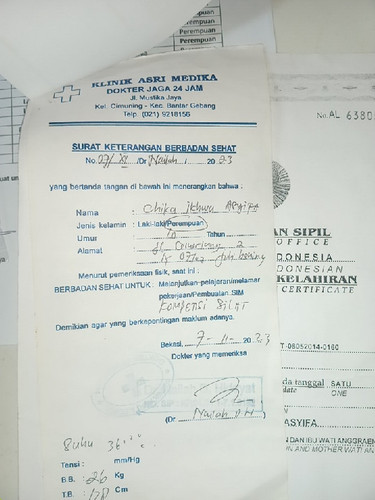 Perempuan
Perempuan
Perempuan
Perempuan
KLINIK ASRI MEDIKA
DOKTER JAGA 24 JAM
Jl. Mustika Jaya
Kel. Cimuning - Kec. Bantar Gebang
Telp. (021) 9218156
SURAT KETERANGAN BERBADAN SEHAT
No. 07/XI /Dr Naiah 20 23
yang bertanda tangan di bawah ini menerangkan bahwa :
Nama : Chika Ikhwa
Jenis kelamin : Laki-laki/Perempuan
Umur : 10 Tahun
Alamat :
Menurut pemeriksaan fisik, saat ini :
BERBADAN SEHAT UNTUK : Melanjutkan pelajaran/melamar
pekerjaan/Pembuatan SIM
KOMPETISI SILAT
Demikian agar yang berkepentingan maklum adanya.
Bekasi, 7-11- 2023
Dokter yang memeriksa
(Dr. Naiah
Suhu 36
Tensi : mm/Hg
B.B. : 26 Kg
T.B. : 128 Cm
No. AL 6380
AN SIPIL
OFFICE
DONESIA
DONESIAN
KELAHIRAN
CERTIFICATE
T-08052014-0160
da tanggal SATU
date ONE
ASYIFA
DAN IBU WATI ANGGRAEN
AND MOTHER WATI AN